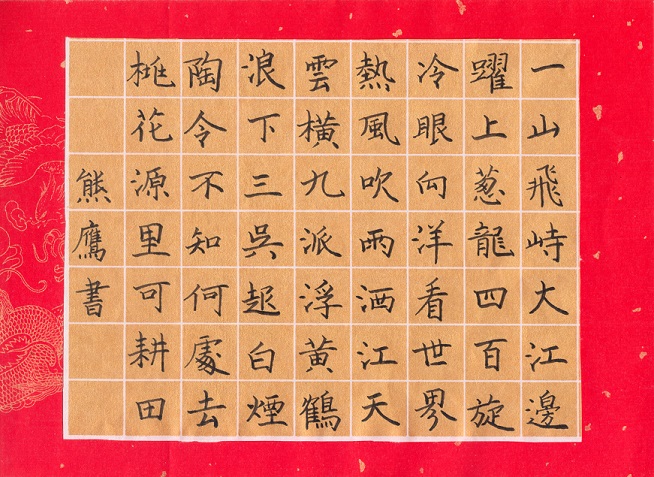 一山飛峙大江邊
躍上葱龍四百旋
冷眼向洋看世界
熱風吹雨洒江天
雲橫九派浮黃鶴
浪下三吳起白煙
陶令不知何處去
桃花源里可耕田
熊鷹書